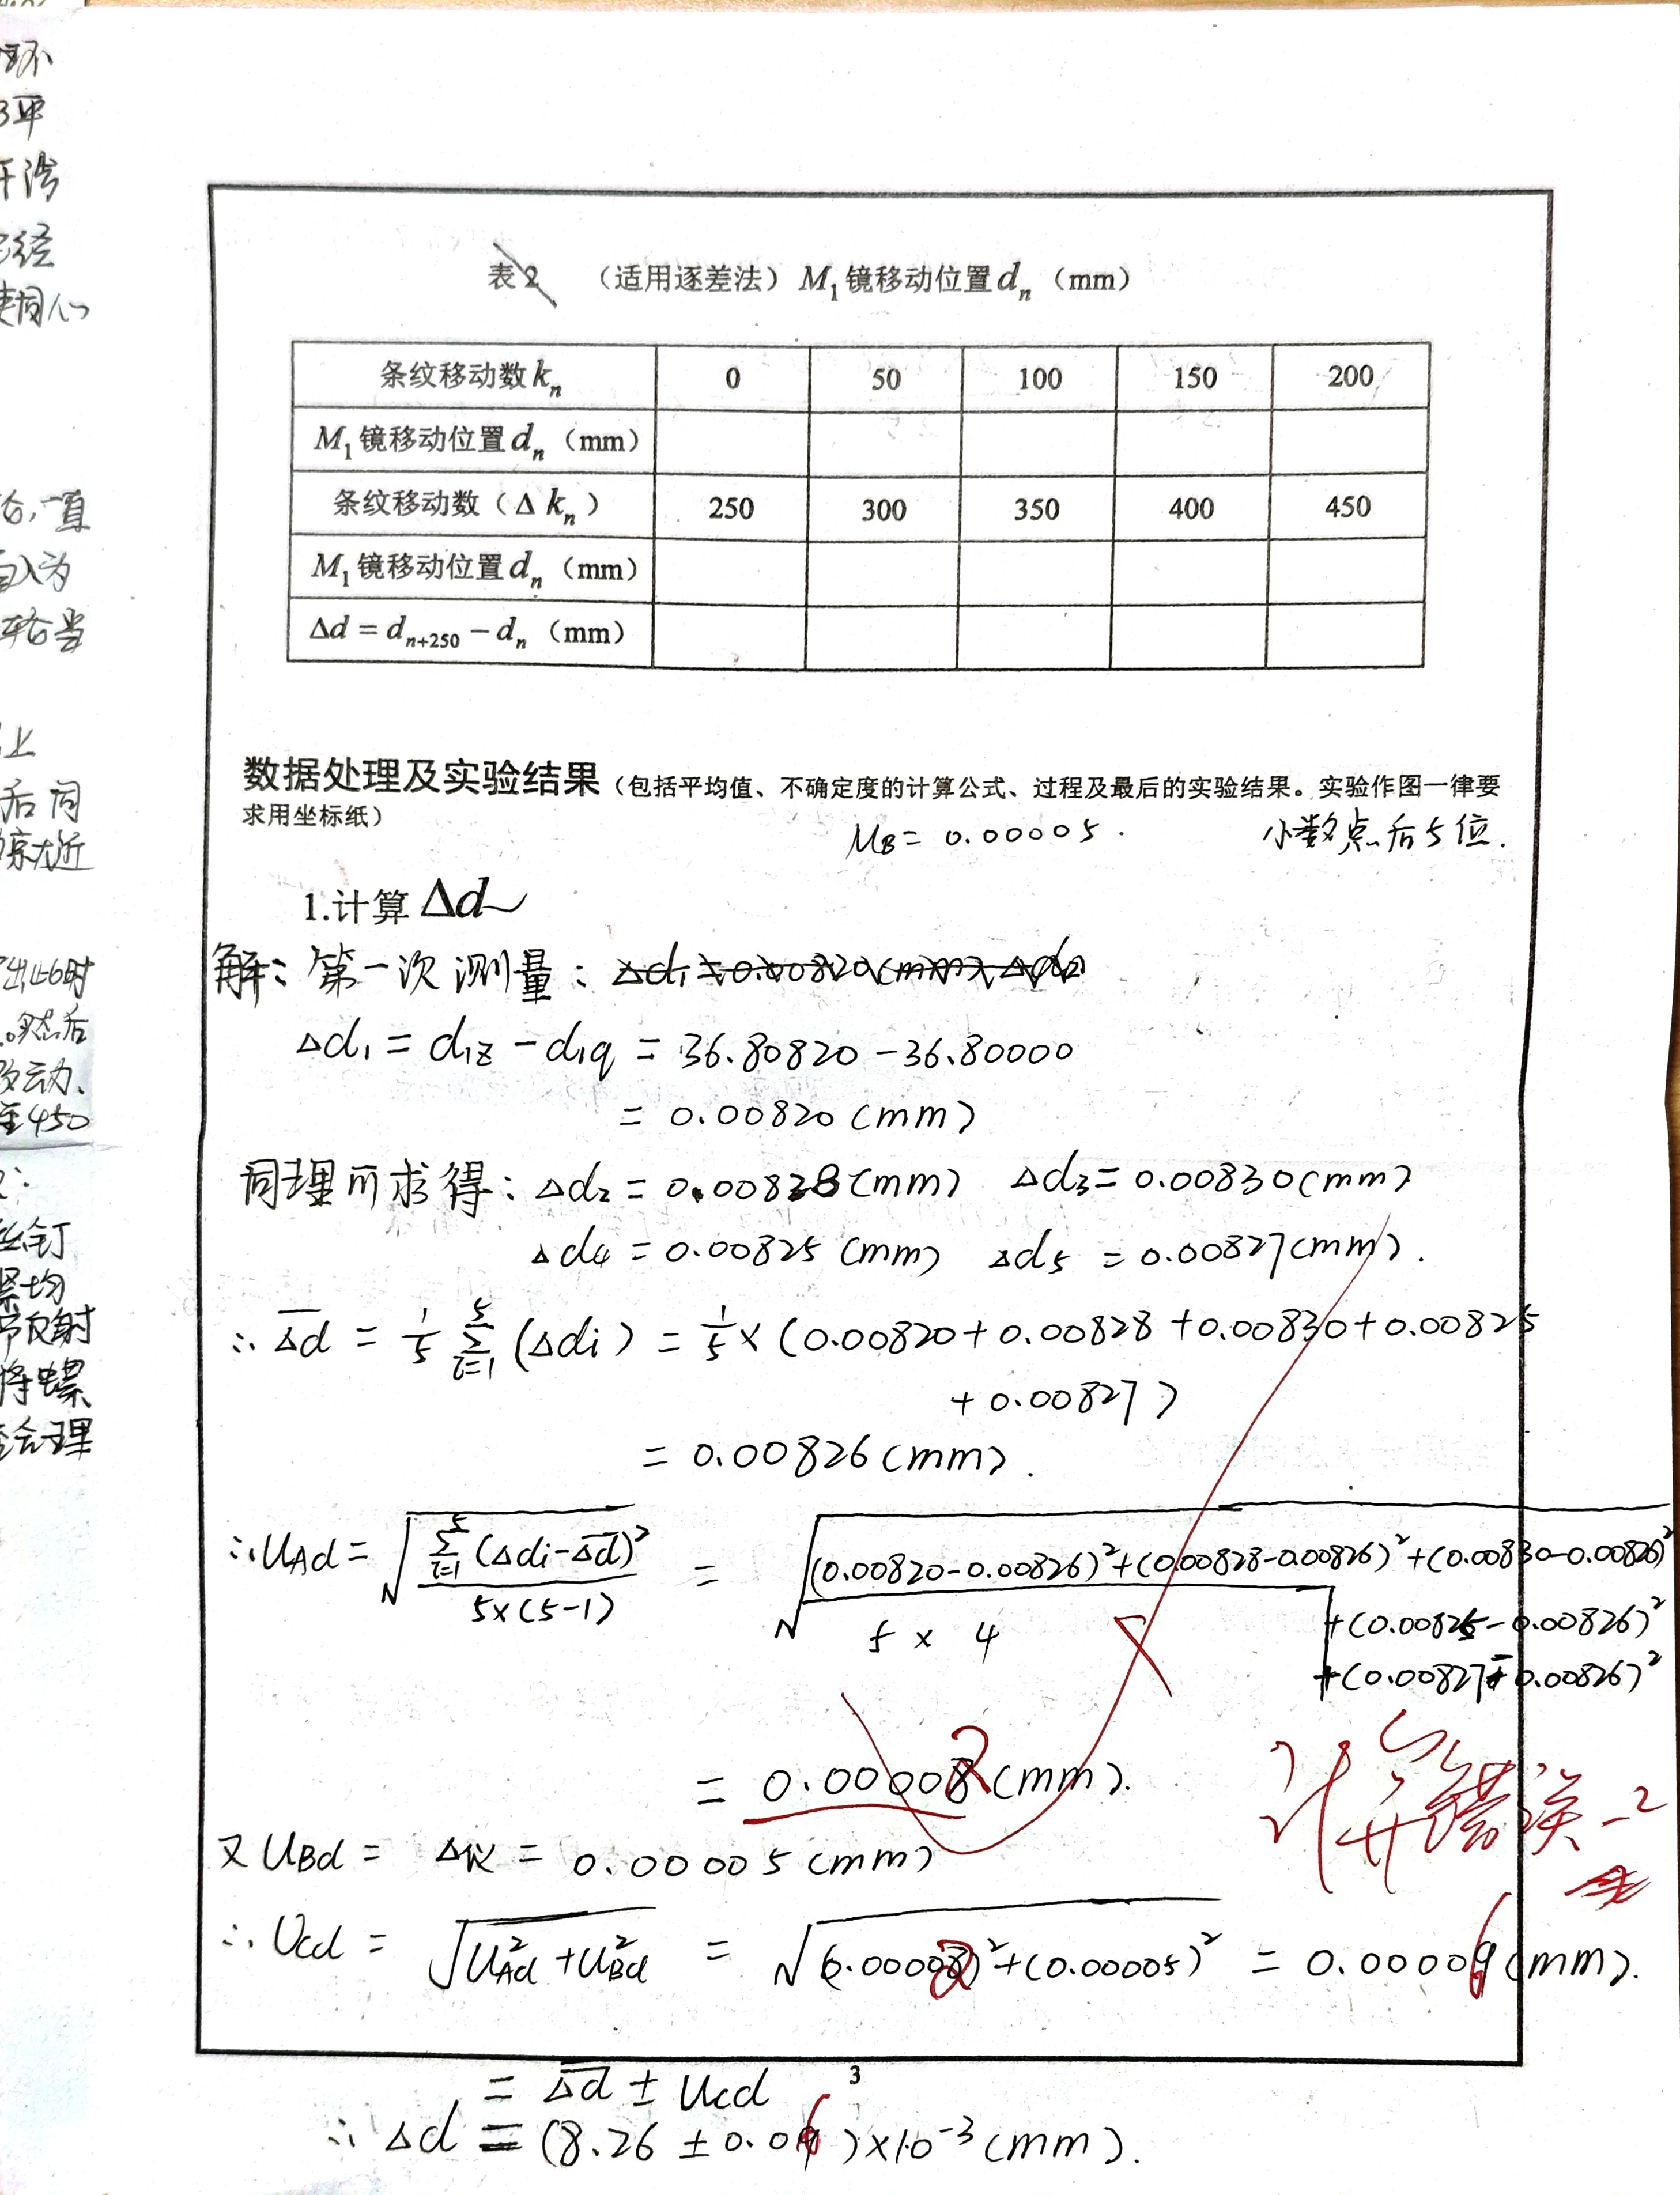 表2 （适用逐差法）M₁镜移动位置dₙ（mm）
条纹移动数kₙ 0 50 100 150 200
M₁镜移动位置dₙ（mm）
条纹移动数（Δ kₙ） 250 300 350 400 450
M₁镜移动位置dₙ（mm）
Δd = dₙ₊₂₅₀ − dₙ（mm）
数据处理及实验结果（包括平均值、不确定度的计算公式、过程及最后的实验结果。实验作图一律要
求用坐标纸）
μB = 0.00005. 小数点后5位.
1.计算 Δd
解：第一次测量：
Δd₁ = d₁z − d₁q = 36.80820 − 36.80000
= 0.00820 (mm)
同理可求得：Δd₂ = 0.00828 (mm) Δd₃ = 0.00830 (mm)
Δd₄ = 0.00825 (mm) Δd₅ = 0.00827 (mm).
∴ Δd̅ = 1/5 Σ(i=1→5) (Δdi) = 1/5 × (0.00820 + 0.00828 + 0.00830 + 0.00825
+ 0.00827)
= 0.00826 (mm).
∴ UAd = √(Σ(i=1→5) (Δdi − Δd̅)² / 5×(5−1)) = √((0.00820−0.00826)² + (0.00828−0.00826)² + (0.00830−0.00826)²
5 × 4 + (0.00825 − 0.00826)²
+ (0.00827 − 0.00826)²
= 0.00002 (mm).
计算错误 −2
又 UBd = Δ仪 = 0.00005 (mm)
∴ Ucd = √(U²Ad + U²Bd) = √((0.00002)² + (0.00005)²) = 0.00006 (mm).
3
= Δd̅ ± Ucd
∴ Δd = (8.26 ± 0.06) × 10⁻³ (mm).
环
3平
经
使同心
直
为
当
上
后同
近
出350时
然后
动、
至450
钉
均
反射
将螺
合理